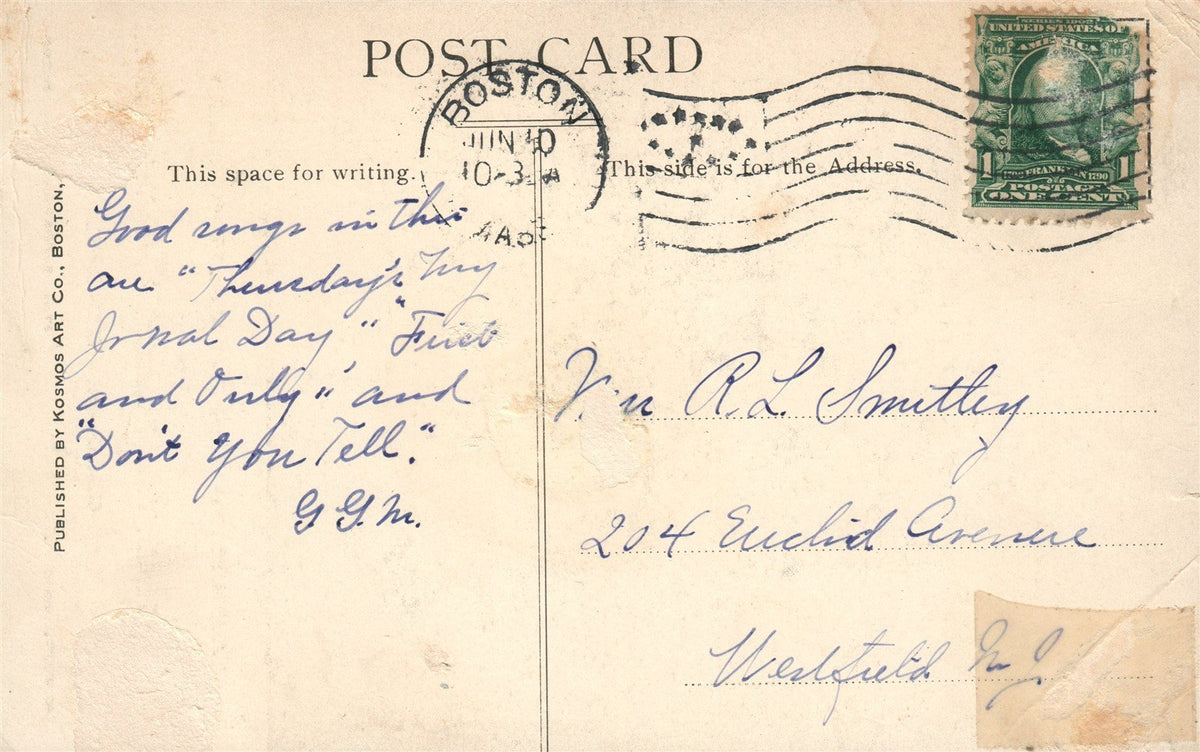 POST CARD
BOSTON
JUN 10
10-3 A
MASS
SERIES 1902
UNITED STATES OF
AMERICA
1 1
FRANKLIN 1790
POSTAGE
ONE CENT
This space for writing.
This side is for the Address.
PUBLISHED BY KOSMOS ART CO., BOSTON,
Good songs in this
are "Thursday's my
Jonal Day" "First
and Only", and
"Don't You Tell."
G G. M.
R. L. Smitley
204 Euclid Avenue
Westfield N J